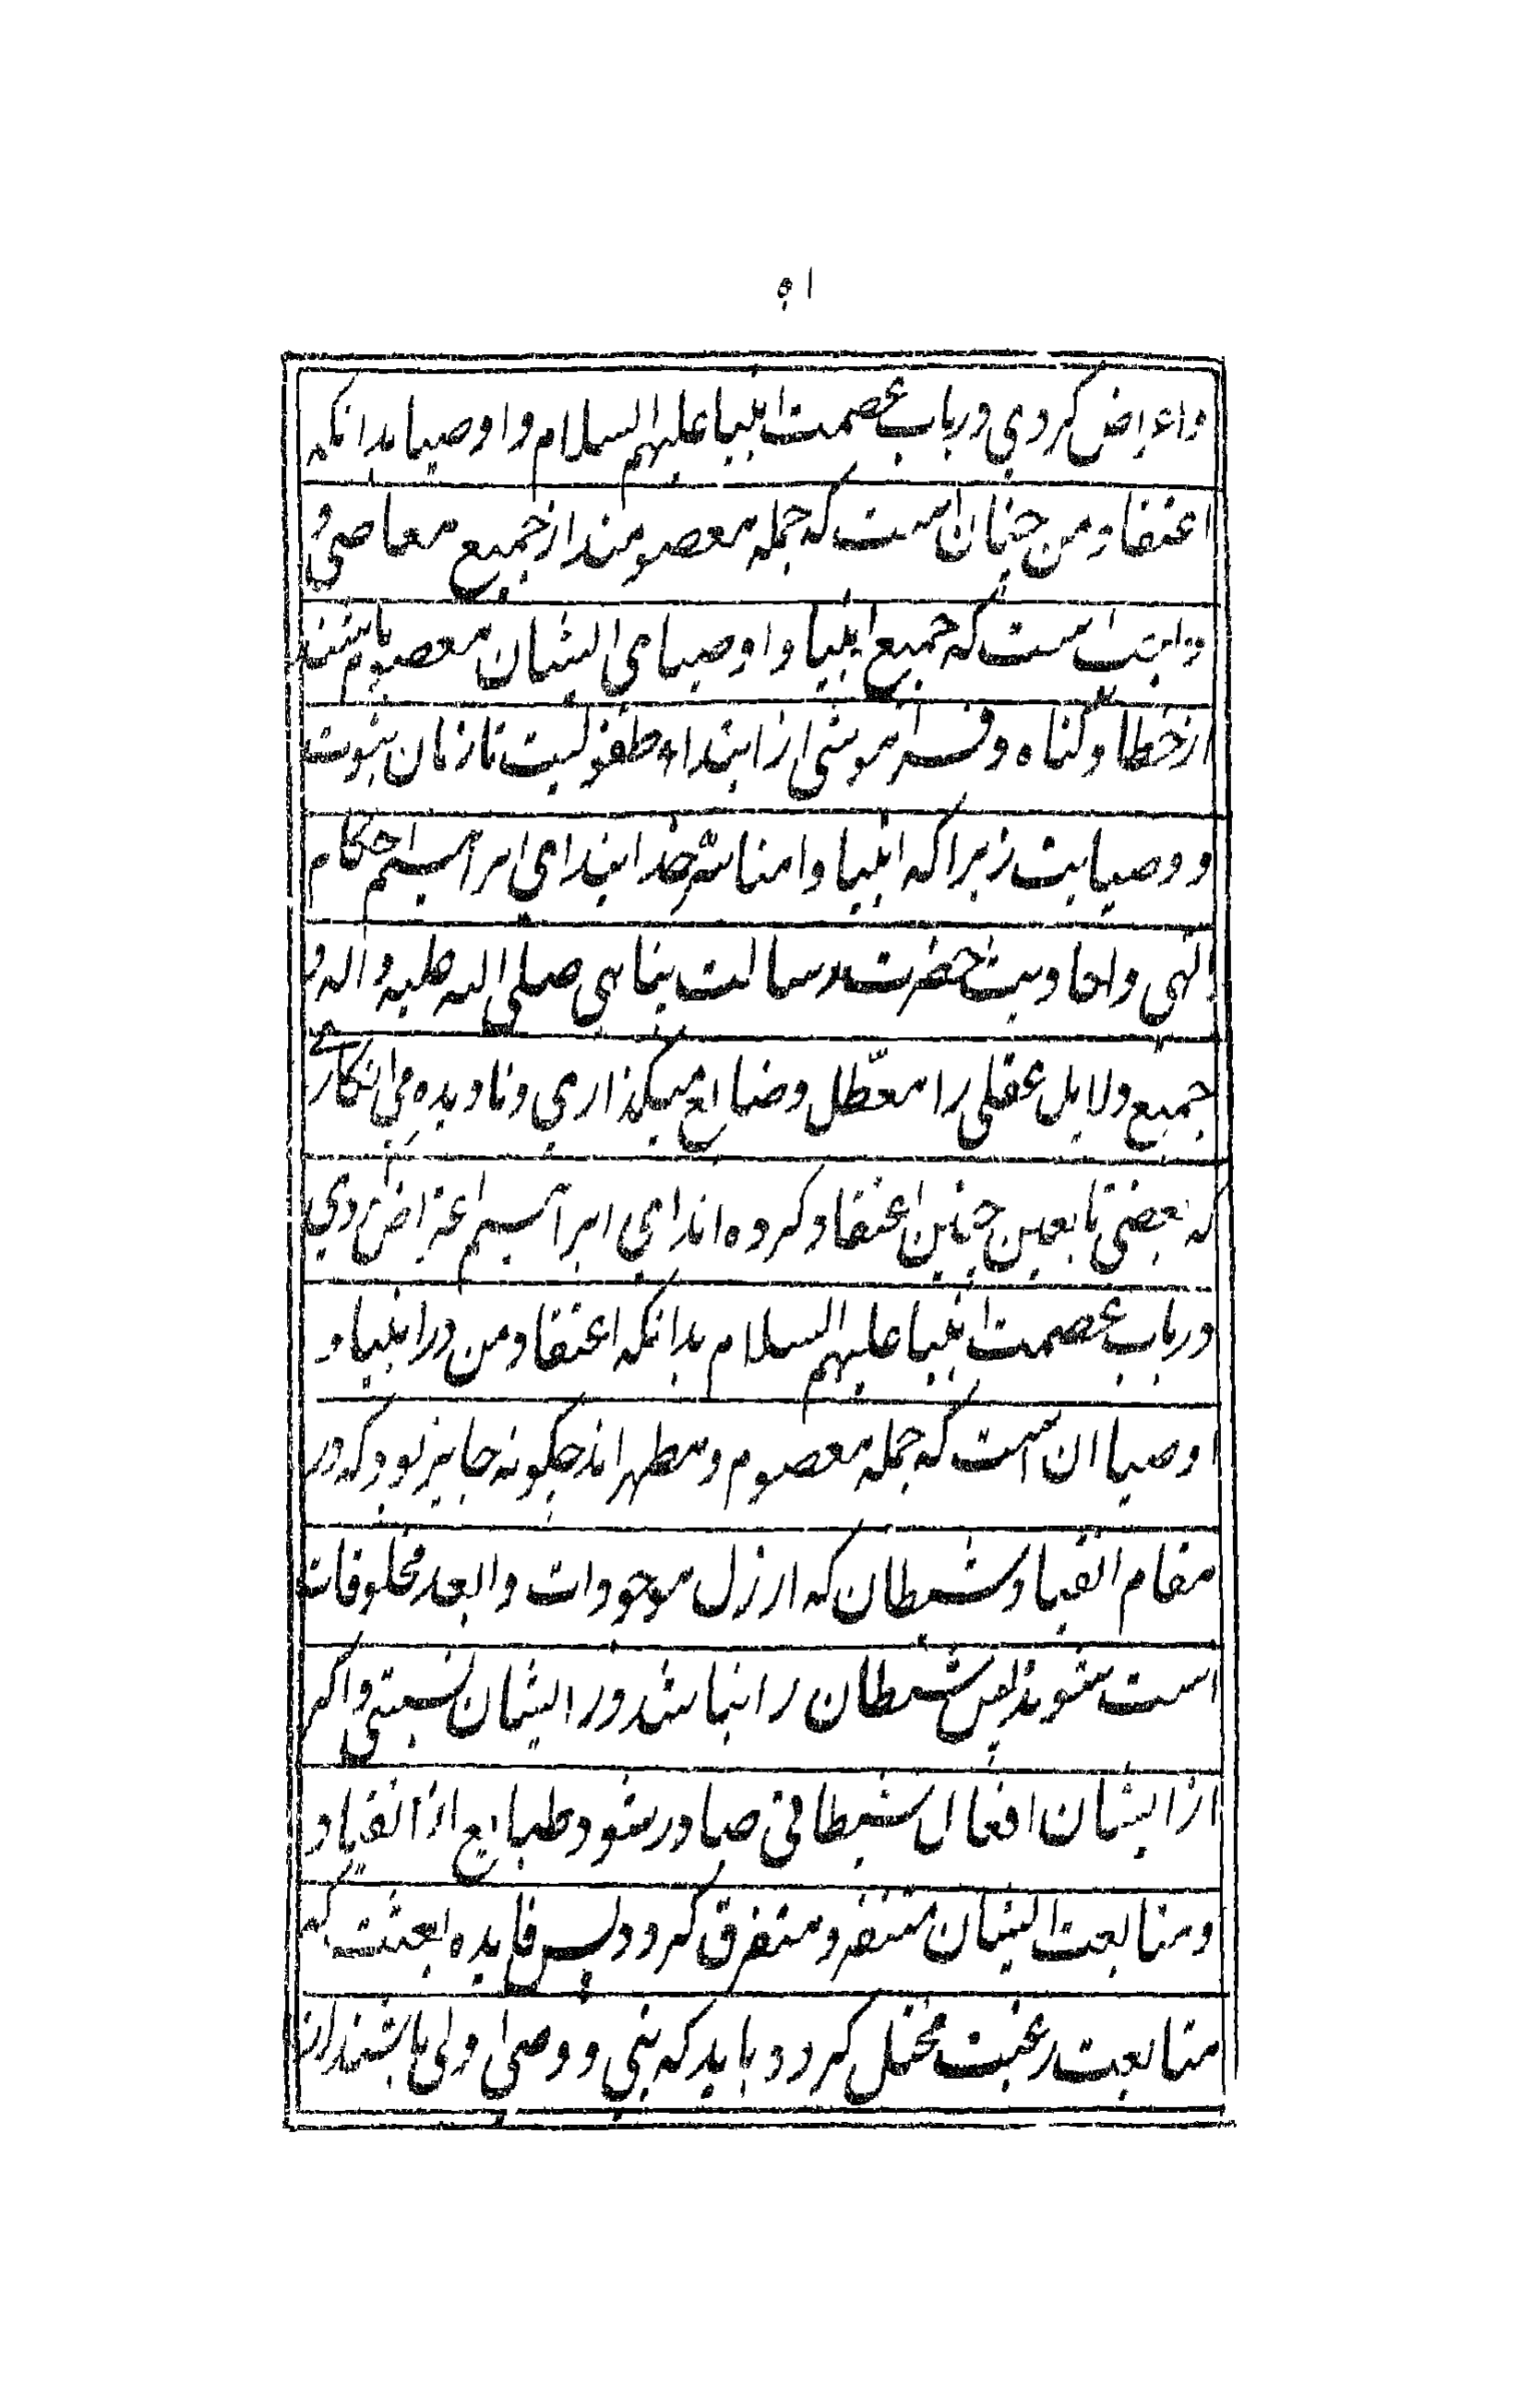 ۵۱
واعراض کردی درباب عصمت انبیا علیهم السلام و اوصیا بدانکه
اعتقاد من چنان است که جمله معصومند از جمیع معاصی و
واجبست که جمیع انبیا و اوصیای ایشان معصوم باشند
از خطا و گناه و فراموشی از ابتداء طفولیت تا زمان نبوت
و وصایت زیرا که انبیا و امناء خدایند ای ابراهیم احکام
الهی و احادیث حضرت رسالت پناهی صلی الله علیه و اله و
جمیع دلایل عقلی را معطّل و ضایع میگذاری و نادیده می انگاری
که بعضی تابعین چنین اعتقاد کرده اند ای ابراهیم اعتراض کردی
درباب عصمت انبیا علیهم السلام بدانکه اعتقاد من در انبیا و
اوصیا ان است که جمله معصوم و مطهر اند چگونه جایز بود که در
مقام انقیاد شیطان که ارزل موجودات و ابعد مخلوقات
است شوند پس شیطان را نباشد در ایشان نسبتی و اگر
از ایشان افعال شیطانی صادر شود طبایع از انقیاد
و متابعت ایشان متنفر و متفرق گردد پس فایده بعثت که
متابعت رغبت مختل گردد و باید که نبی و وصی اولی باشند از